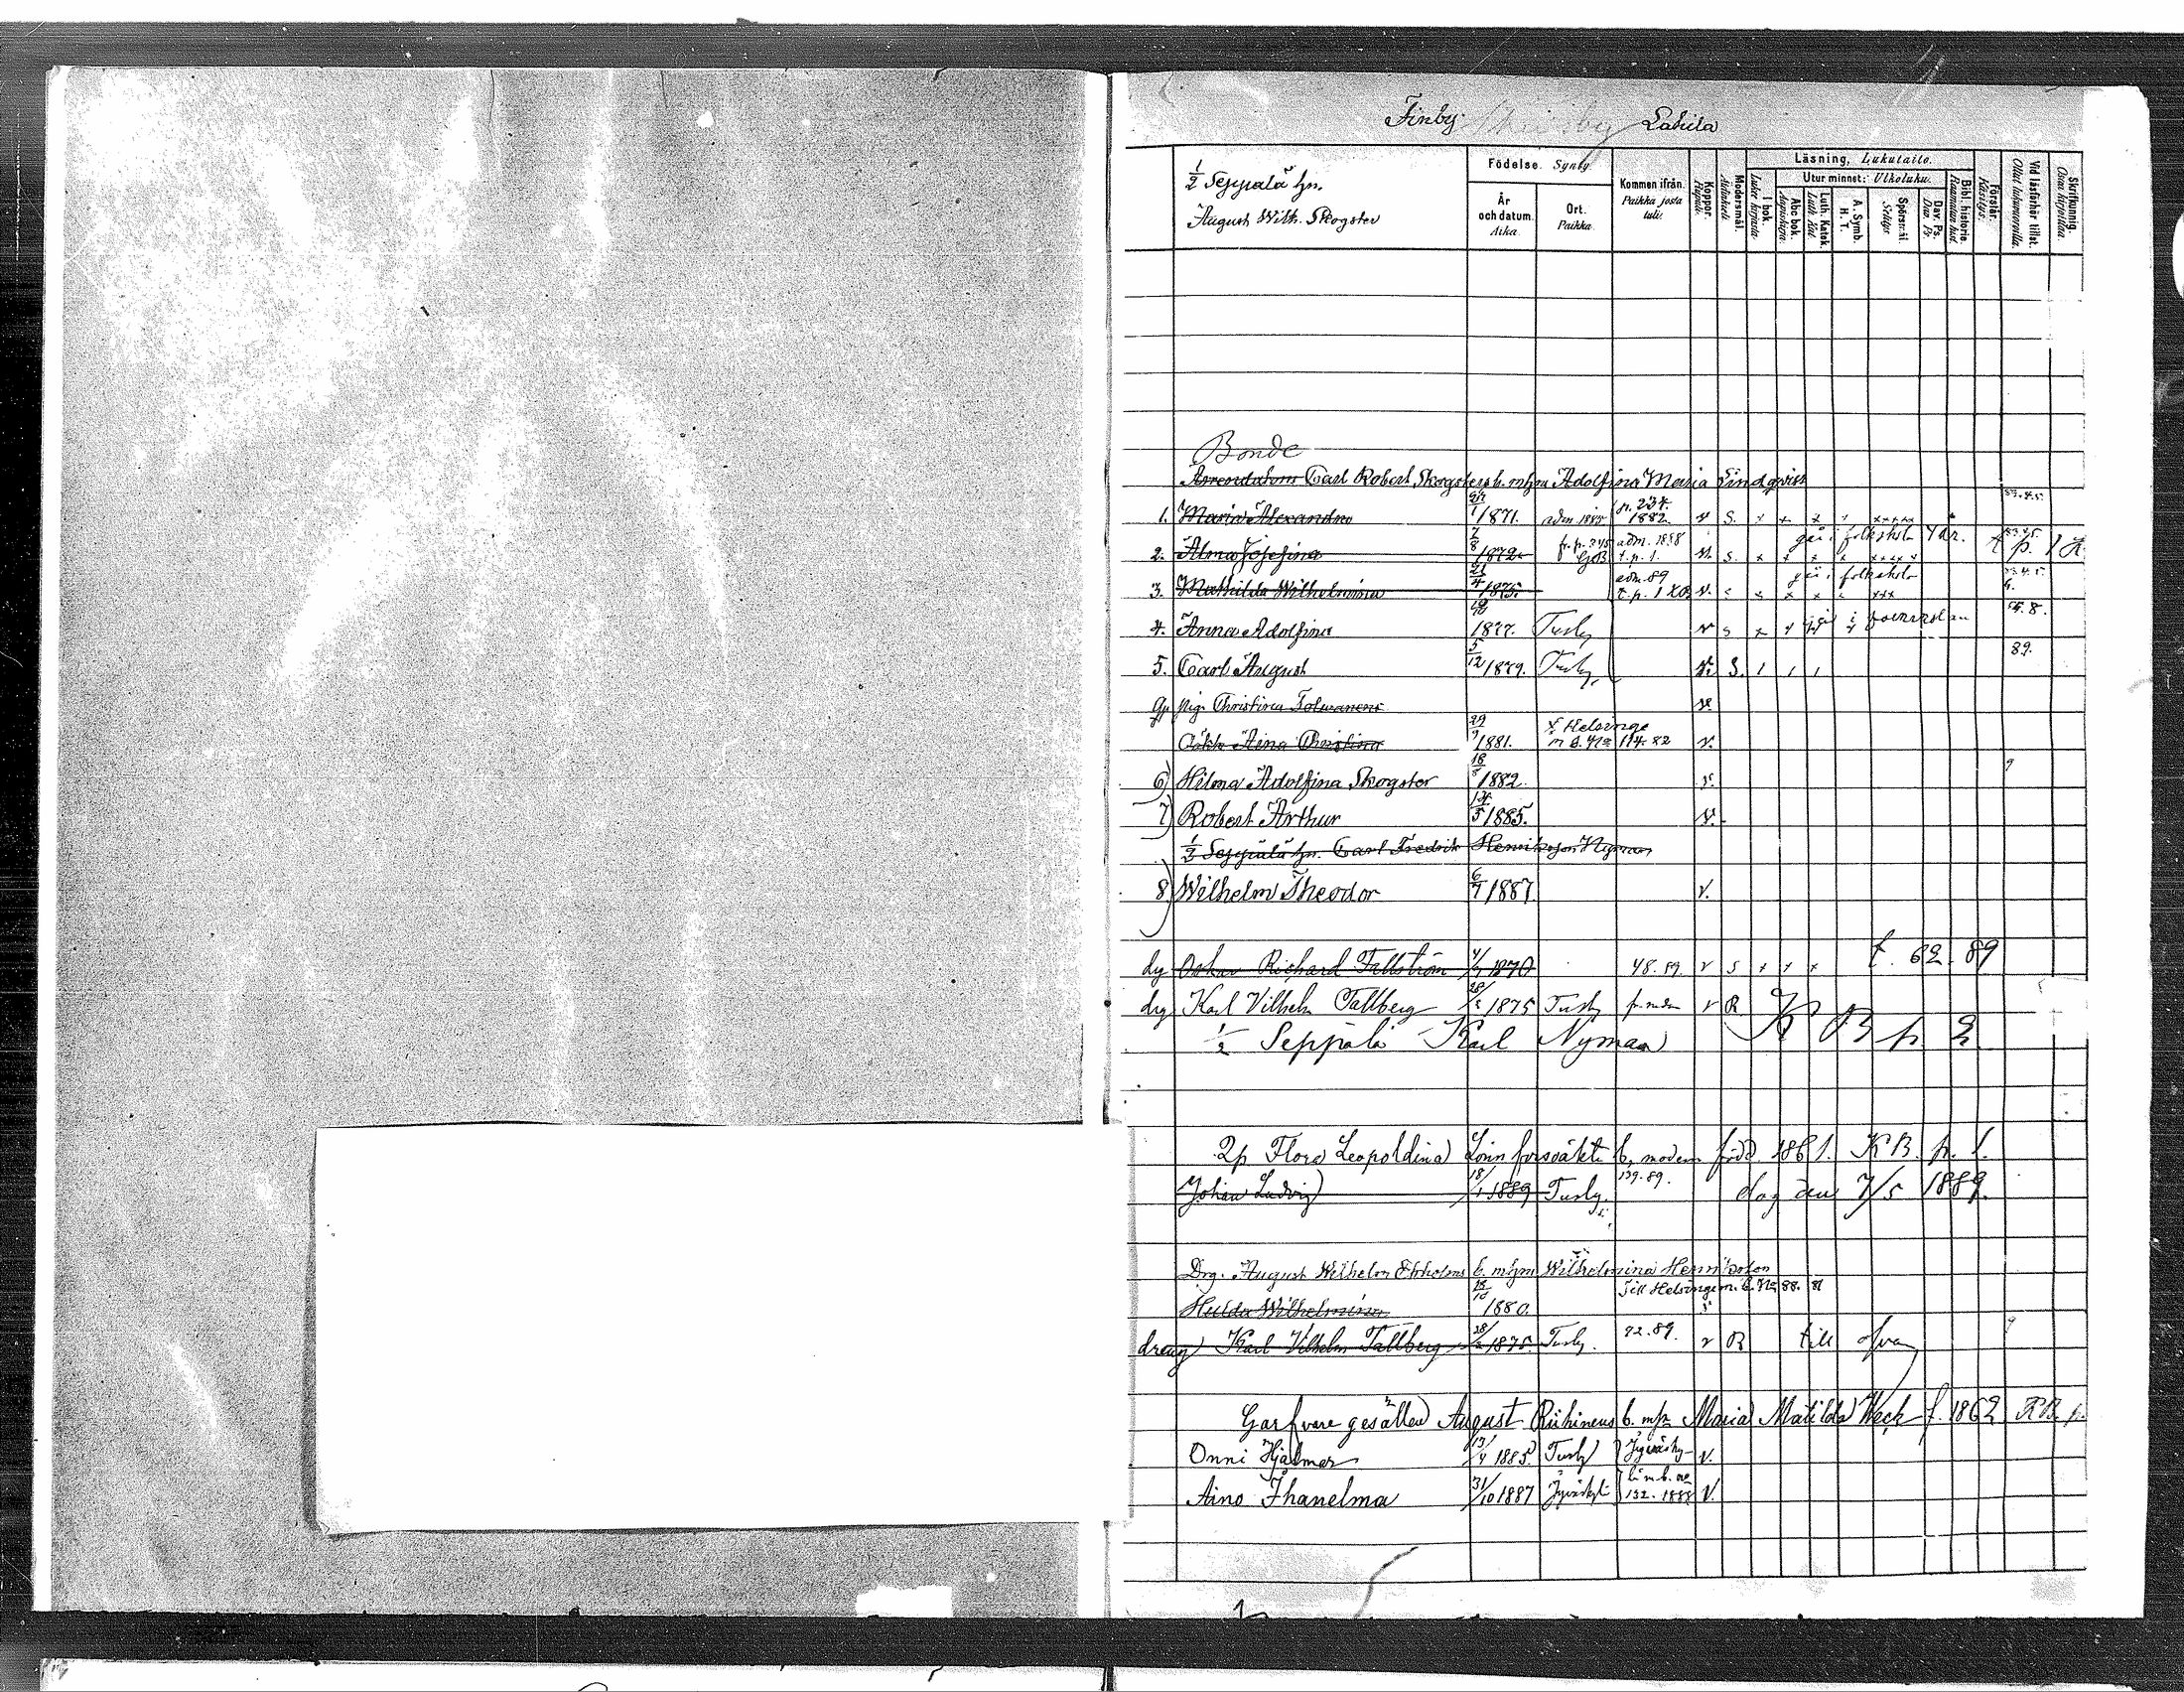 Finby. Lahila
1/2 Seppälä hn.
August Wilh. Skogster
Födelse. Synty.
År och datum. Aika.
Ort. Paikka.
Kommen ifrån. Paikka josta tuli.
Koppor. Rupuli.
Modersmål. Äidinkieli
Läsning, Lukutaito.
I bok. Luku kirjasta.
Utur minnet: Ulkoluku.
Abc bok. Aapiskirja.
Luth. Katek. Luth. Kat.
A. Symb. H. T.
Spörsmål. Selitys.
Dav. Ps. Dav. Ps.
Bibl. historie. Raamatun hist.
Förstår. Käsitys.
Vid läsförhör tillst. Ollut lukukinkerillä.
Skrifkunnig. Osaa kirjoittaa.
Bonde
Carl Robert Skogsters b. m. hn Adolfina Maria Lindqvist
1. Maria Alexandra 1871. adm 1885 p. 234. 1882. v S.
2. Alma Josefina 7/8 1872 adm. 1888 t. p. 1. v. s. går i folkskol. 4 år.
3. Mathilda Wilhelmina 21/4 1875. adm. 89 t. p. 1 KB v. s går i folkskol
4. Anna Adolfina 1877. Tusby v s
5. Carl August 5/12 1879. Tusby v. S. 89.
pig. Christina Tolwanens v.
oäkta Aina Christina 29/9 1881. t Helsinge m b. No 114. 82 v.
6) Hilma Adolfina Skogster 18/8 1882. v.
7) Robert Arthur 14/5 1885. v.
1/2 Seppälä hn. Carl Fredrik Henriksson Nyman
8) Wilhelm Theodor 6/7 1887 V.
dg Oskar Richard Fallström 1870 48. 89. v s t. 62. 89
drg Karl Vilhelm Tallberg 28/2 1875 Tusby v R
1/2 Seppälä Karl Nyman K B p 2
Qp Flora Leopoldina Lönn försoäkta b, modern född 1861. KB p. 1.
Johan Ludvig 18/1 1889 Tusby. 139. 89. dog den 7/5 1889.
Drg. August Wilhelm Ekholms b. m hn Wilhelmina Henriksson
Hulda Wilhelmina 1880. Till Helsinge m. b. No 88. 81 v
dräng Karl Vilhelm Tallberg 28/2 1875. Tusby. 92. 89. v R till ofvan
Garfvare gesällen August Riihinens b. m/h Maria Matilda Weck f. 1862 KB p.
Onni Hjalmar 13/4 1885. Tusby Jyväsky- V.
Aino Ihanelma 31/10 1887 Jyväskyl lä m. b. no 132. 1888 V.